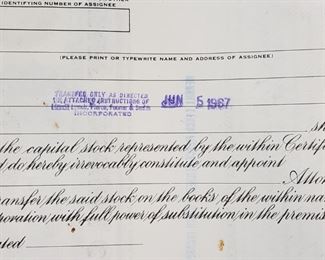 (IDENTIFYING NUMBER OF ASSIGNEE
(PLEASE PRINT OR TYPEWRITE NAME AND ADDRESS OF ASSIGNEE)
TRANSFER ONLY AS DIRECTED
IN ATTACHED INSTRUCTIONS OF
Merrill Lynch, Pierce, Fenner & Smith
INCORPORATED
JUN 5 1967
sh
the capital stock represented by the within Certifi
d do hereby irrevocably constitute and appoint
Attor
ransfer the said stock on the books of the within na
rporation with full power of substitution in the premis
ated